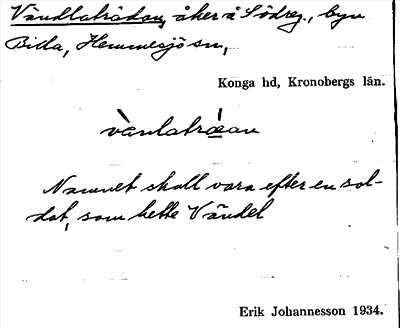 Vändlatrådan, åker å Södreg., byn
Billa, Hemmesjö sn,
Konga hd, Kronobergs län.
vànlatrå̀an
Namnet skall vara efter en sol-
dat, som hette Vändel
Erik Johannesson 1934.